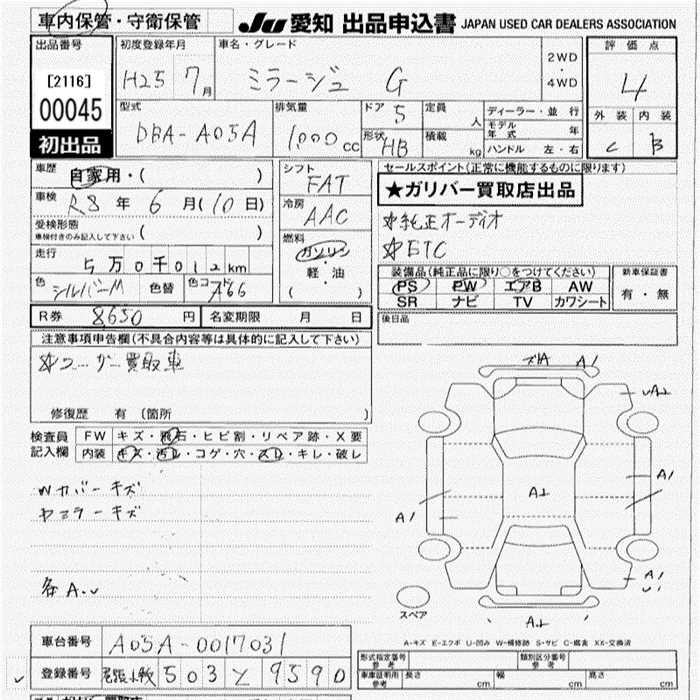 車内保管・守衛保管
JU 愛知 出品申込書 JAPAN USED CAR DEALERS ASSOCIATION
出品番号
[2116]
00045
初出品
初度登録年月
H25 7月
車名・グレード
ミラージュ G
2WD
・
4WD
評価点
4
外装 内装
C B
型式
DBA-A05A
排気量
1,000cc
ドア 5
形状 HB
定員 人
積載 kg
ディーラー・並行
モデル年式 年
ハンドル 左・右
車歴
自家用・( )
車検 R8年 6月(10日)
受検形態
車検付きのみ記入して下さい ( )
走行
5万0千012km
色 シルバーM 色替 色コード A66
シフト
FAT
冷房
AAC
燃料
ガソリン
軽・油
( )
セールスポイント(正常に機能するものに限ります)
★ガリバー買取店出品
☆純正オーディオ
☆ETC
装備品(純正品に限り○をつけてください)
PS PW エアB AW
SR ナビ TV カワシート
新車保証書
有・無
R券 8650円 名変期限 月 日
後日品
注意事項申告欄(不具合内容等は具体的に記入して下さい)
☆ユーザー買取車
修復歴 有 (箇所 )
検査員記入欄
FW キズ・飛石・ヒビ割・リペア跡・X要
内装 キズ・汚レ・コゲ・穴・スレ・キレ・破レ
Wカバーキズ
ヤミラーキズ
各A.U
ズレA A1
UA2
A1
A1
A2
A1
U1
A2
スペア
A-キズ E-エクボ U-凹み W-補修跡 S-サビ C-腐食 XX-交換済
車台番号 A05A-0017031
登録番号 503 と 9590
形式指定番号 参考
類別区分番号 参考
車庫証明用 参考
長さ cm 幅 cm 高さ cm